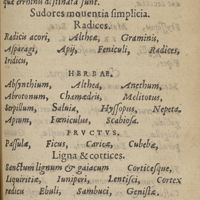 quæ errhinis destinata sunt.
Sudores mouentia simplicia.
Radices.
Radicis acori, Altheæ, Graminis,
Asparagi, Apij, Feniculi, Radices,
Iridis,
HERBAE.
Absynthium, Althea, Anethum,
Abrotonum, Chamædris, Melilotus,
Serpillum, Saluia, Hyssopus, Nepeta.
Apium, Fœniculus, Scabiosa.
FRVCTVS.
Passulæ, Ficus, Caricæ, Cubebæ,
Ligna & cortices.
Sanctum lignum & gaiacum Corticesque,
Liquiritiæ, Iuniperi, Lentisci, Cortex
radicū Ebuli, Sambuci, Genistæ.